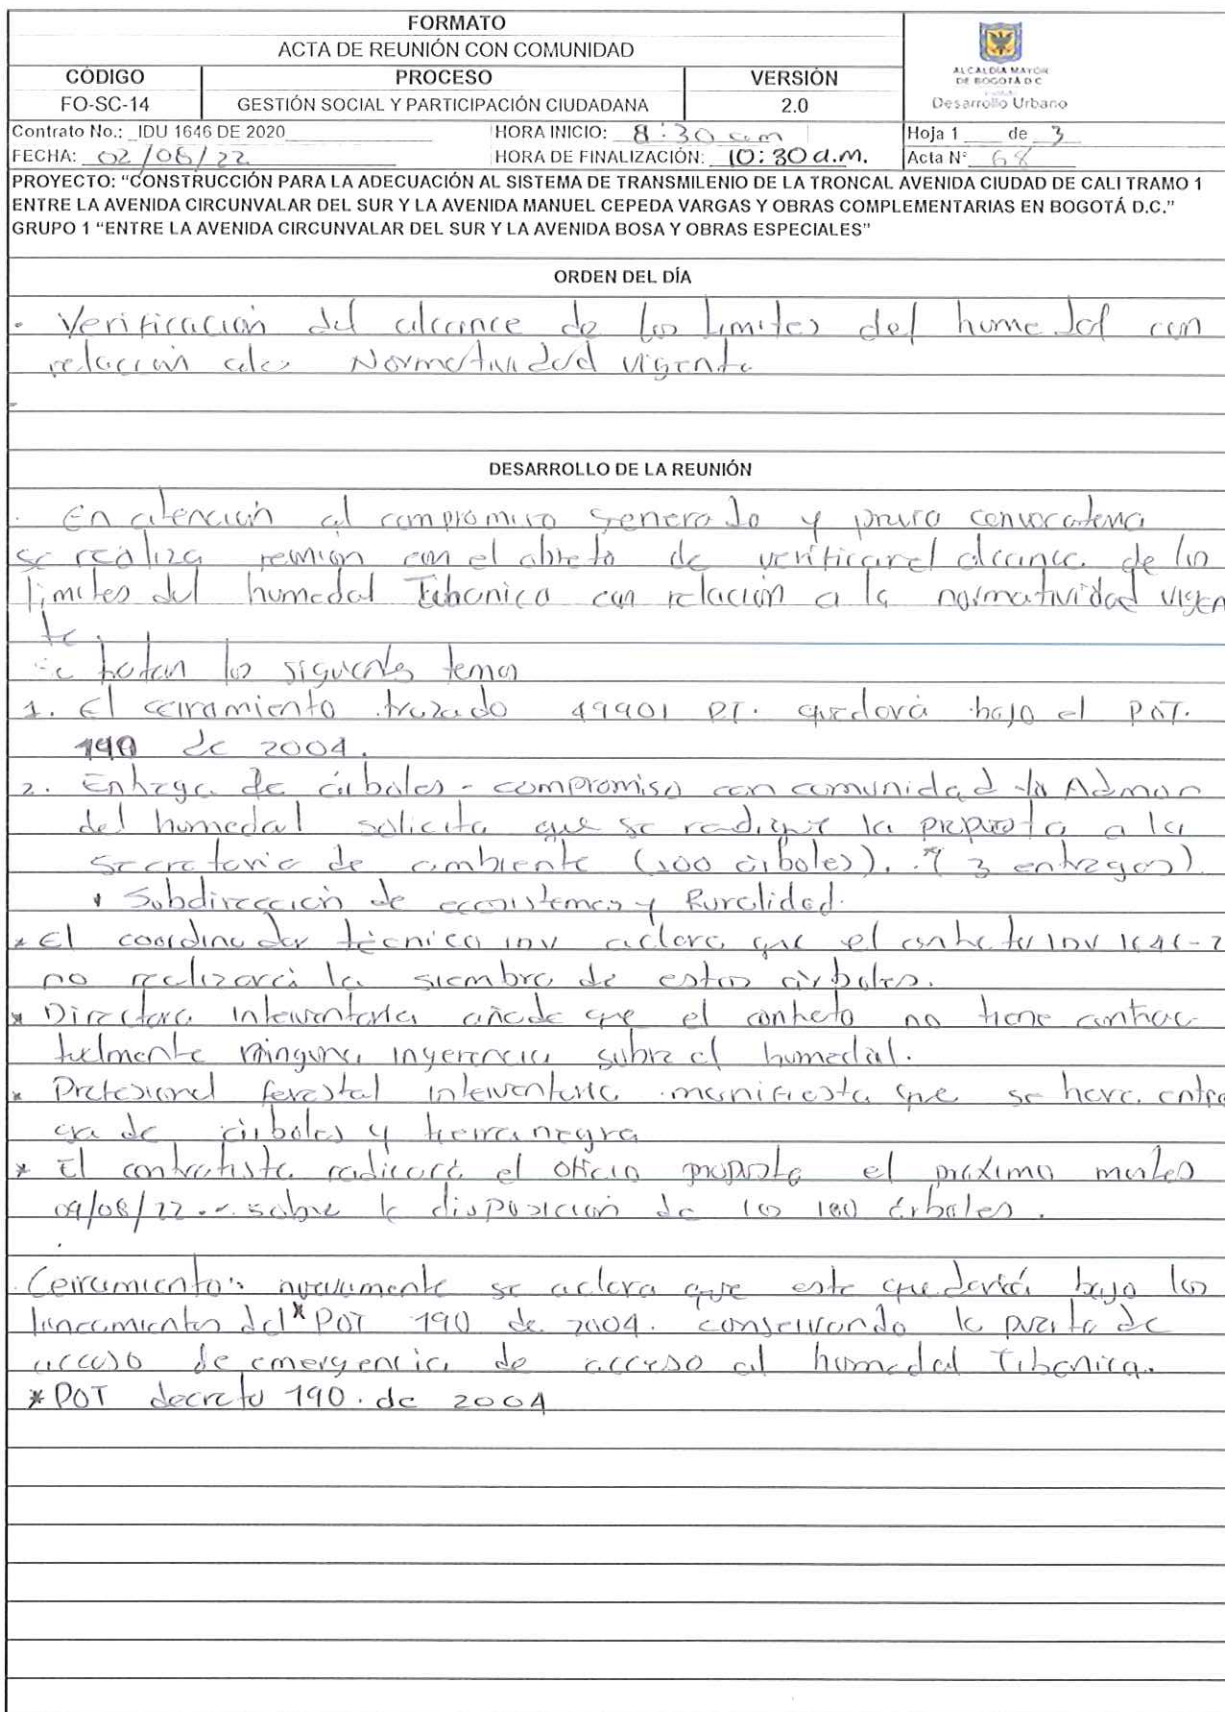 FORMATO
ACTA DE REUNIÓN CON COMUNIDAD
CÓDIGO PROCESO VERSIÓN
FO-SC-14 GESTIÓN SOCIAL Y PARTICIPACIÓN CIUDADANA 2.0
ALCALDÍA MAYOR
DE BOGOTÁ D.C.
Desarrollo Urbano
Contrato No.: IDU 1646 DE 2020 HORA INICIO: 8:30 am Hoja 1 de 3
FECHA: 02/08/22 HORA DE FINALIZACIÓN: 10:30 a.m. Acta N° 68
PROYECTO: “CONSTRUCCIÓN PARA LA ADECUACIÓN AL SISTEMA DE TRANSMILENIO DE LA TRONCAL AVENIDA CIUDAD DE CALI TRAMO 1
ENTRE LA AVENIDA CIRCUNVALAR DEL SUR Y LA AVENIDA MANUEL CEPEDA VARGAS Y OBRAS COMPLEMENTARIAS EN BOGOTÁ D.C.”
GRUPO 1 “ENTRE LA AVENIDA CIRCUNVALAR DEL SUR Y LA AVENIDA BOSA Y OBRAS ESPECIALES”
ORDEN DEL DÍA
- Verificación del alcance de los limites del humedal con
relación a la Normatividad vigente
DESARROLLO DE LA REUNIÓN
. En atención al compromiso generado y previa convocatoria
se realiza reunión con el objeto de verificar el alcance de los
limites del humedal Tibanica con relación a la normatividad vigen
te.
Se tratan los siguientes temas
1. El cerramiento trazado 49901 quedará bajo el POT.
190 de 2004.
2. Entrega de árboles - compromiso con comunidad la Admon
del humedal solicita que se radique la propuesta a la
secretaria de ambiente (100 árboles). (3 entregas)
• Subdirección de ecosistemas y Ruralidad.
* El coordinador técnico inv aclara que el contrato 1646-2
no realizará la siembra de estos árboles.
* Directora interventoria añade que el contrato no tiene contrac
tualmente ninguna ingerencia sobre el humedal.
* Profesional forestal interventoria manifiesta que se hara entre
ga de árboles y tierra negra
* El contratista radicará el oficio propuesta el próximo martes
09/08/22 sobre la disposición de los 100 árboles.
Cerramiento: nuevamente se aclara que este quedará bajo los
lineamientos del * POT 190 de 2004. conservando la puerta de
acceso de emergencia de acceso al humedal Tibanica.
* POT decreto 190. de 2004